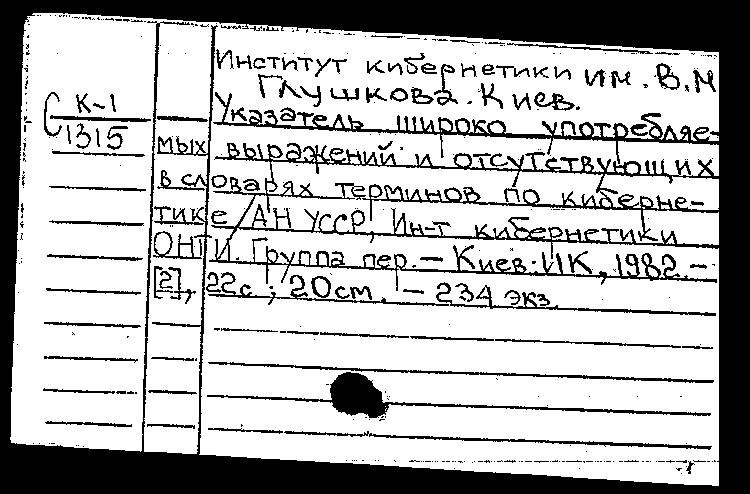 Институт кибернетики им. В.М
Глушкова. Киев.
С К-1
1315
Указатель широко употребляе-
мых выражений и отсутствующих
в словарях терминов по киберне-
тике / АН УССР, Ин-т кибернетики
ОНТИ. Группа пер. – Киев: ИК, 1982. –
[2], 22с.; 20см. – 234 экз.